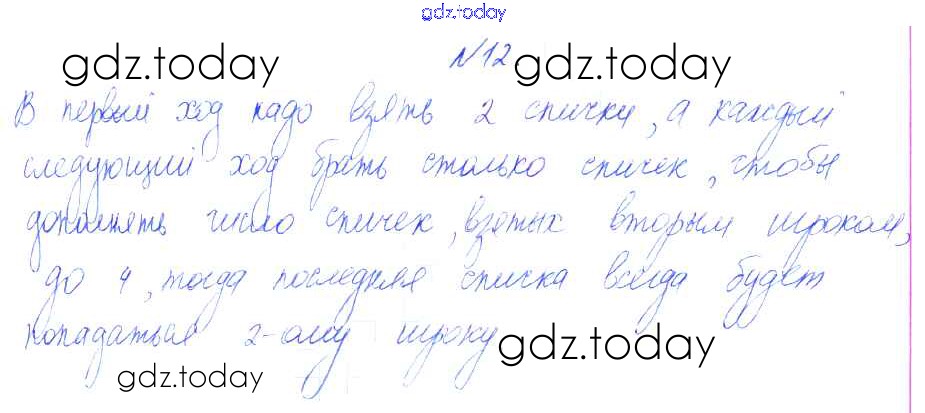 gdz.today
gdz.today №12 gdz.today
В первый ход надо взять 2 спички, а каждый
следующий ход брать столько спичек, чтобы
дополнять число спичек, взятых вторым игроком,
до 4, тогда последняя спичка всегда будет
попадаться 2-ому игроку gdz.today
gdz.today